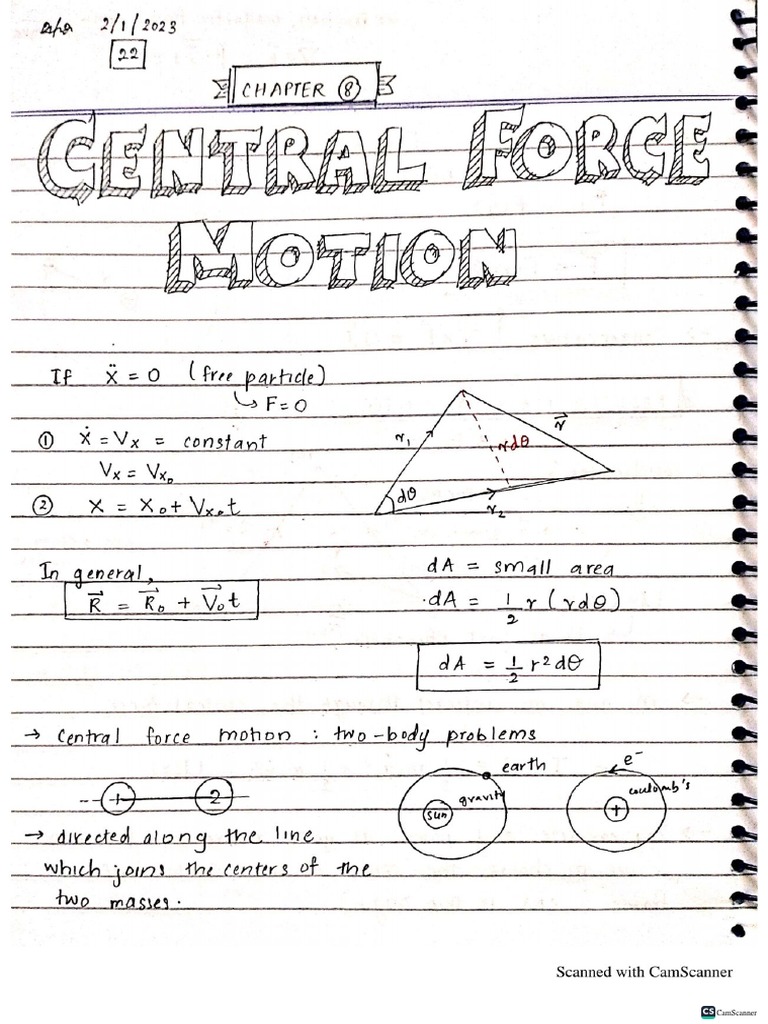 2/1/2023
22
CHAPTER ⑧
CENTRAL FORCE
MOTION
If ẍ = 0 (free particle)
↳ F = 0
① ẋ = Vx = constant
Vx = Vx₀
② x = x₀ + Vx₀t
r₁
rdθ
r⃗
dθ
r₂
In general,
R⃗ = R⃗₀ + V⃗₀t
dA = small area
dA = 1/2 r (rdθ)
dA = 1/2 r² dθ
→ central force motion : two-body problems
1 2
earth
gravity
sun
e⁻
coulomb's
+
→ directed along the line
which joins the centers of the
two masses.
Scanned with CamScanner
CS CamScanner